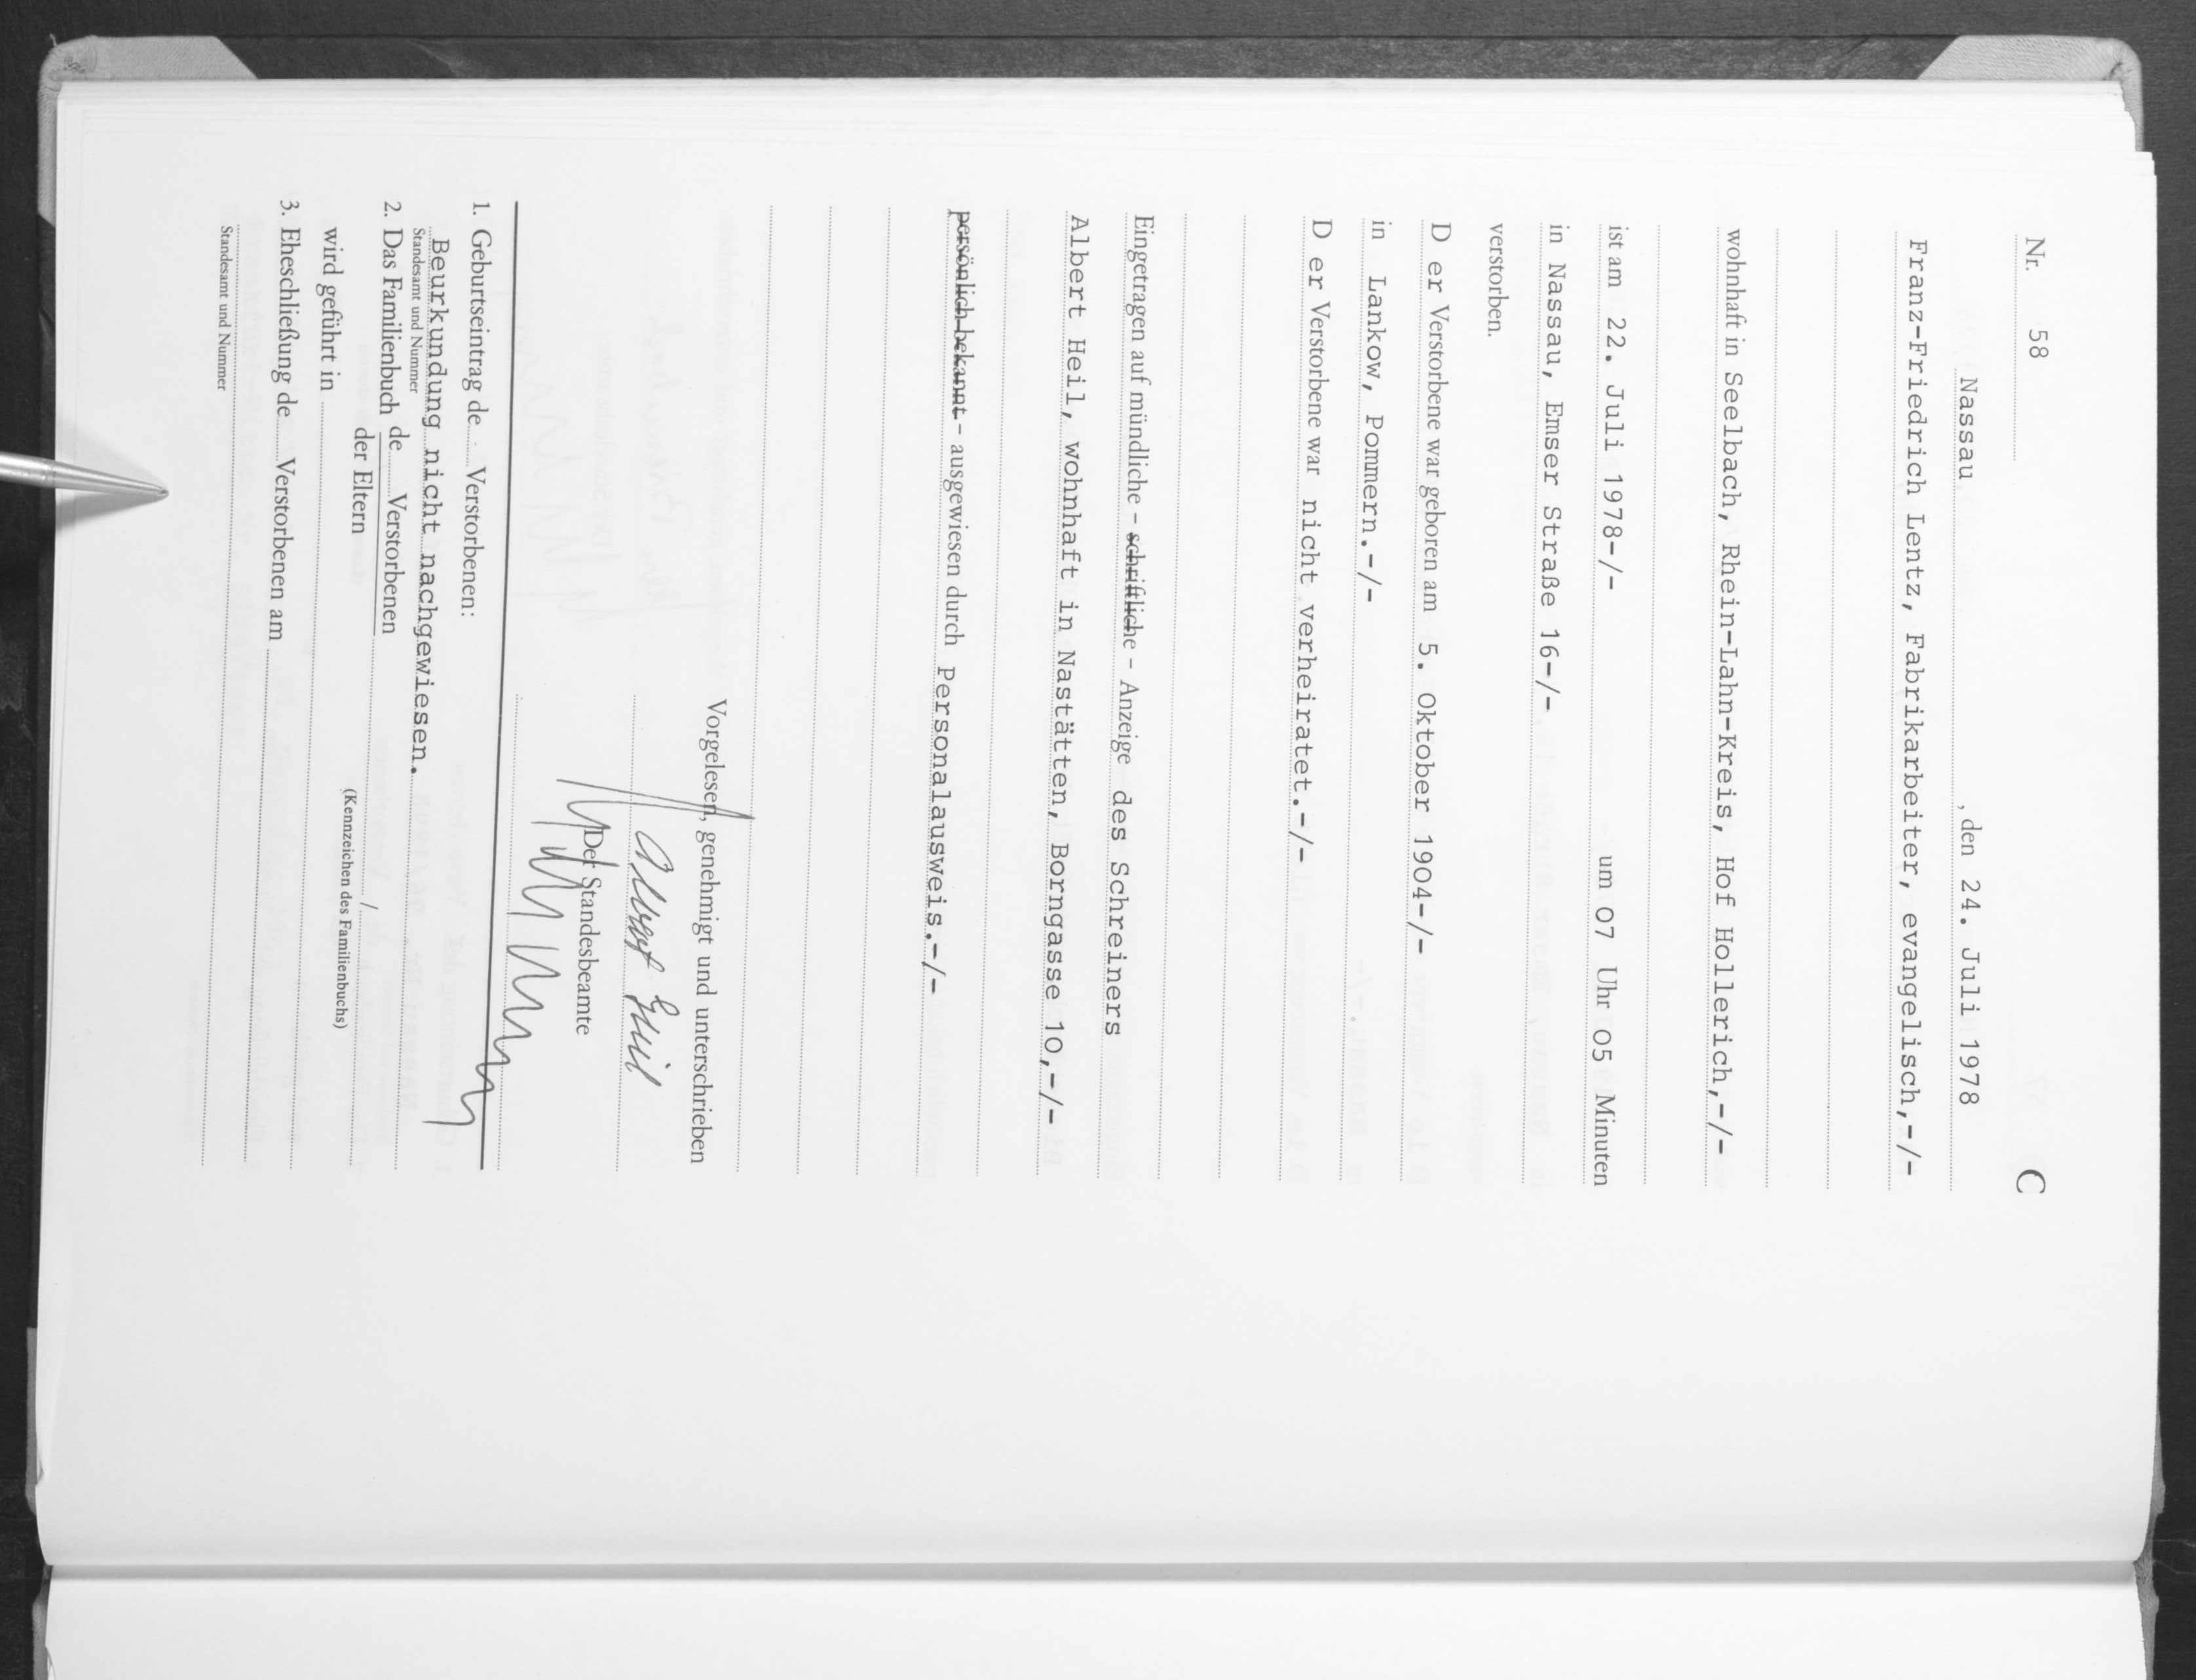 Nr. 58 C
Nassau , den 24. Juli 1978
Franz-Friedrich Lentz, Fabrikarbeiter, evangelisch,-/-
wohnhaft in Seelbach, Rhein-Lahn-Kreis, Hof Hollerich,-/-
ist am 22. Juli 1978-/- um 07 Uhr 05 Minuten
in Nassau, Emser Straße 16-/-
verstorben.
D er Verstorbene war geboren am 5. Oktober 1904-/-
in Lankow, Pommern.-/-
D er Verstorbene war nicht verheiratet.-/-
Eingetragen auf mündliche - schriftliche - Anzeige des Schreiners
Albert Heil, wohnhaft in Nastätten, Borngasse 10,-/-
persönlich bekannt - ausgewiesen durch Personalausweis.-/-
Vorgelesen, genehmigt und unterschrieben
Albert Heil
Der Standesbeamte
1. Geburtseintrag de Verstorbenen:
Beurkundung nicht nachgewiesen.
Standesamt und Nummer
2. Das Familienbuch de Verstorbenen
der Eltern /
wird geführt in (Kennzeichen des Familienbuchs)
3. Eheschließung de Verstorbenen am
Standesamt und Nummer